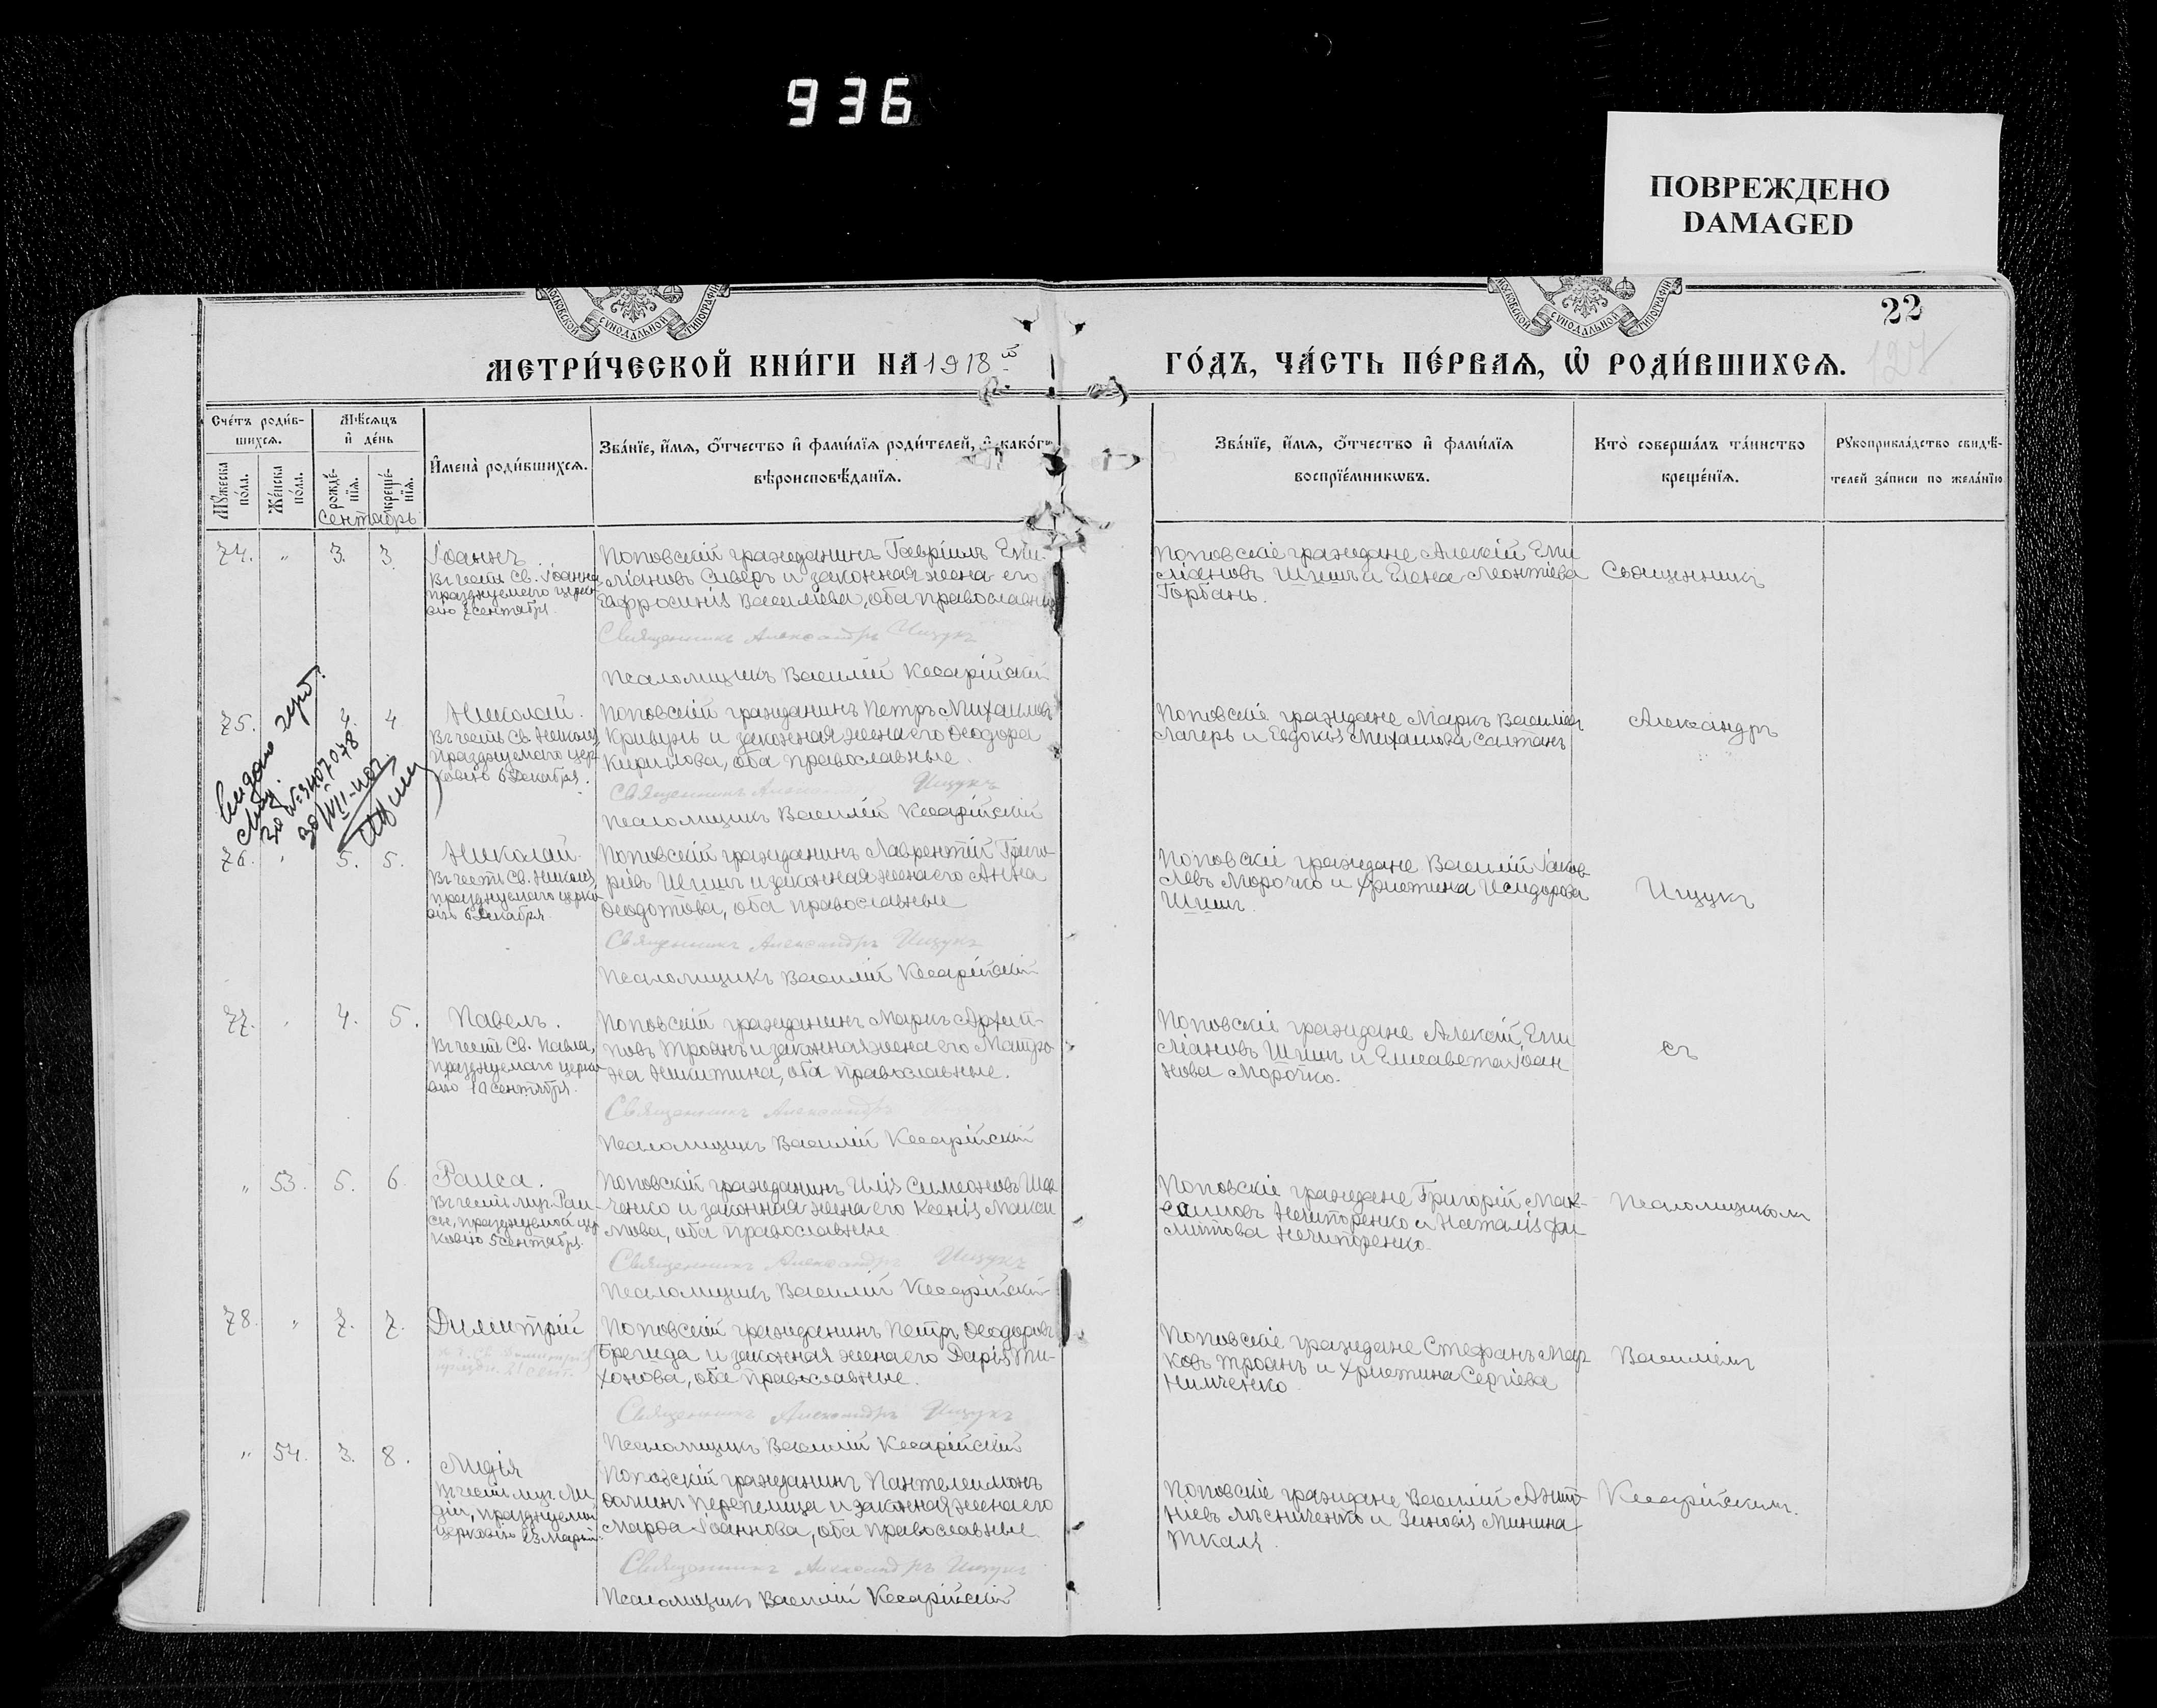 936
ПОВРЕЖДЕНО
DAMAGED
МОСКОВСКОЙ СѴНОДАЛЬНОЙ ТИПОГРАФІИ
МОСКОВСКОЙ СѴНОДАЛЬНОЙ ТИПОГРАФІИ
22
127
МЕТРИ́ЧЕСКОЙ КНИ́ГИ НА 1918 й
ГО́ДЪ, ЧА́СТЬ ПЕ́РВАЯ, Ѡ РОДИ́ВШИХСЯ.
Сче́тъ роди́в-
шихся.
Мѣ́сяцъ
и де́нь
Мꙋ́жеска по́ла.
Же́нска по́ла.
рожде́-
нїя.
креще́-
нїя.
Сентябрь
Имена̀ роди́вшихся.
Зва́нїе, и́мя, ѻ́тчество и фами́лїя роди́телей, и како́гѡ
вѣроисповѣ́данїя.
Зва́нїе, и́мя, ѻ́тчество и фами́лїя
воспрїе́мникѡвъ.
Кто̀ соверша́лъ та́инство
креще́нїя.
Рꙋкоприкла́дство свидѣ́-
телей за́писи по жела́нїю
74. " 3. 3. Іоаннъ
Въ честь Св. Іоанна
празднуемаго церко-
вію 2 сентября.
Поповскій гражданинъ Гавріилъ Еми-
ліановъ Сиверъ и законная жена его
Евфросинія Васильева, оба православные
Священникъ Александръ Ищукъ
Псаломщикъ Василій Кесарійскій
Поповскіе граждане Алексій Еми
ліановъ Шишъ и Елена Леонтіева
Горбань.
Священникъ
75. 4. 4 Николай.
Въ честь Св. Николая
празднуемаго цер-
ковію 6 декабря.
Поповскій гражданинъ Петръ Михаиловъ
Кривунъ и законная жена его Ѳеодора
Кирилова, оба православные.
Священникъ Александръ Ищукъ
Псаломщикъ Василій Кесарійскій
Поповскіе граждане Маркъ Васильевъ
Лагеръ и Евдокія Михаилова Салтанъ
Александръ
№ 3407078
76. " 5. 5. Николай.
Въ честь Св. Николая,
празднуемаго церко-
вію 6 декабря.
Поповскій гражданинъ Лаврентій Григо-
ріевъ Шишъ и законная жена его Анна
Ѳеодотова, оба православные
Священникъ Александръ Ищукъ
Псаломщикъ Василій Кесарійскій
Поповскіе граждане Василій Іаков-
левъ Морочко и Христина Исидорова
Шишъ.
Ищукъ
77. " 4. 5. Павелъ.
Въ честь Св. Павла,
празднуемаго церко-
вію 10 сентября.
Поповскій гражданинъ Маркъ Архип-
повъ Троянъ и законная жена его Матро-
на Никитина, оба православные.
Священникъ Александръ Ищукъ
Псаломщикъ Василій Кесарійскій
Поповскіе граждане Алексій Еми
ліановъ Шишъ и Елисавета Іоан
нова Морочко.
съ
" 53. 5. 6. Раиса.
Въ честь муч. Раи-
сы, празднуемой цер
ковію 5 сентября.
Поповскій гражданинъ Илія Симеоновъ
ченко и законная жена его Ксенія Макси
мова, оба православные
Священникъ Александръ Ищукъ
Псаломщикъ Василій Кесарійскій
Поповскіе граждане Григорій Мак-
симовъ Нечипоренко и Наталія Фи
липпова Нечипоренко.
Псаломщикомъ
78. " 7. 7. Димитрій
въ ч. Св. Димитрія
праздн. 21 сент.
Поповскій гражданинъ Петръ Ѳеодоровъ
Брегида и законная жена его Дарія Ти-
хонова, оба православные.
Священникъ Александръ Ищукъ
Псаломщикъ Василій Кесарійскій
Поповскіе граждане Стефанъ Мар
ковъ Троянъ и Христина Сергіева
Нимченко
Василіемъ
" 54. 3. 8. Лидія
Въ честь муч. Ли
діи, празднуемой
церковію 23 марта.
Поповскій гражданинъ Пантелеимонъ
Ѳоминъ Перепелица и законная жена его
Марѳа Іоаннова, оба православные
Священникъ Александръ Ищукъ
Псаломщикъ Василій Кесарійскій
Поповскіе граждане Василій Анто-
ніевъ Мѣсниченко и Зиновія Минина
Ткаля.
Кесарійскимъ.